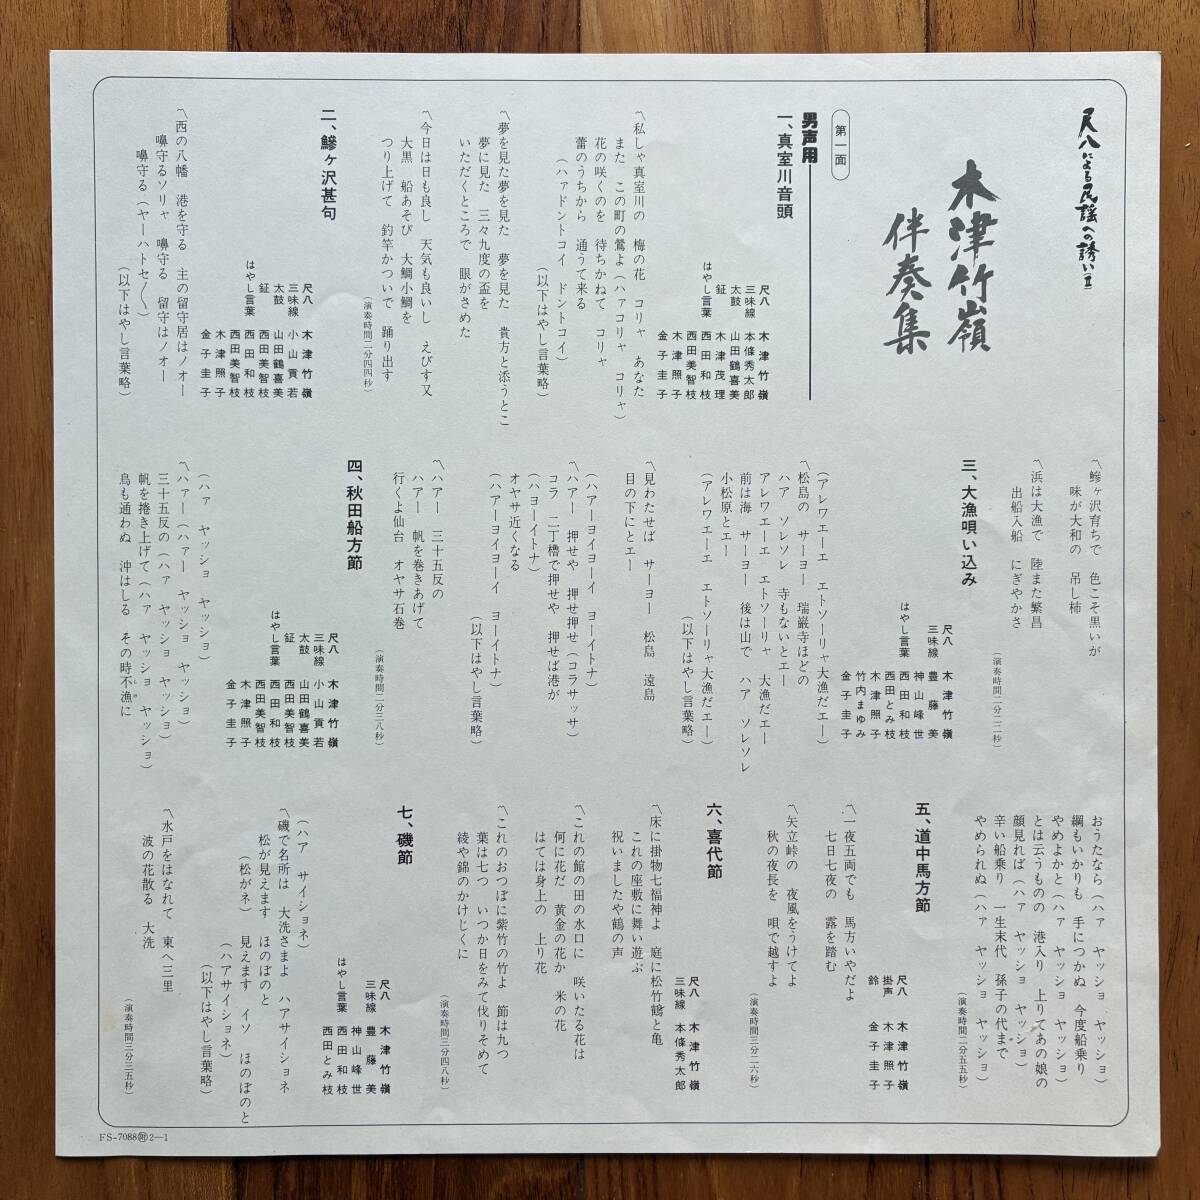 尺八による民謡への誘い(Ⅱ)
木津竹嶺
伴奏集
第一面
男声用
一、真室川音頭
尺八 木津竹嶺
三味線 本條秀太郎
太鼓 山田鶴喜美
鉦 木津茂理
はやし言葉 西田和枝
西田美智枝
木津照子
金子圭子
〽私しゃ真室川の 梅の花 コリャ あなた
また この町の鶯よ(ハァコリャ コリャ)
花の咲くのを 待ちかねて コリャ
蕾のうちから 通うて来る
(ハァドントコイ ドントコイ)
(以下はやし言葉略)
〽夢を見た夢を見た 夢を見た 貴方と添うとこ
夢に見た 三々九度の盃を
いただくところで 眼がさめた
〽今日は日も良し 天気も良いし えびす又
大黒 船あそび 大鯛小鯛を
つり上げて 釣竿かついで 踊り出す
(演奏時間二分四四秒)
二、鰺ヶ沢甚句
尺八 木津竹嶺
三味線 小山貢若
太鼓 山田鶴喜美
鉦 西田美智枝
はやし言葉 西田和枝
西田美智枝
木津照子
金子圭子
〽西の八幡 港を守る 主の留守居はノオー
嗅守るソリャ 嗅守る 留守はノオー
嗅守る(ヤーハトセ〳〵)
(以下はやし言葉略)
〽鰺ヶ沢育ちで 色こそ黒いが
味が大和の 吊し柿
〽浜は大漁で 陸また繁昌
出船入船 にぎやかさ
(演奏時間二分二二秒)
三、大漁唄い込み
尺八 木津竹嶺
三味線 豊藤美
神山峰世
はやし言葉 西田和枝
西田とみ枝
木津照子
竹内まゆみ
金子圭子
(アレワエーエ エトソーリャ大漁だエー)
〽松島の サーヨー 瑞巌寺ほどの
ハア ソレソレ 寺もないとエー
アレワエーエ エトソーリャ 大漁だエー
前は海 サーヨー 後は山で ハア ソレソレ
小松原とエー
(アレワエーエ エトソーリャ大漁だエー)
(以下はやし言葉略)
〽見わたせば サーヨー 松島 遠島
目の下にとエー
(ハアーヨイヨーイ ヨーイトナ)
〽ハアー 押せや 押せ押せ(コラサッサ)
コラ 二丁櫓で押せや 押せば港が
(ハヨーイトナ)
オヤサ近くなる
(ハアーヨイヨーイ ヨーイトナ)
(以下はやし言葉略)
〽ハアー 三十五反の
ハアー 帆を巻きあげて
行くよ仙台 オヤサ石巻
(演奏時間二分三八秒)
四、秋田船方節
尺八 木津竹嶺
三味線 小山貢若
太鼓 山田鶴喜美
鉦 西田美智枝
はやし言葉 西田和枝
西田美智枝
木津照子
金子圭子
(ハァ ヤッショ ヤッショ)
〽ハァー(ハァー ヤッショ ヤッショ)
三十五反の(ハァ ヤッショ ヤッショ)
帆を捲き上げて(ハァ ヤッショ ヤッショ)
鳥も通わぬ 沖はしる その時不漁に
おうたなら(ハァ ヤッショ ヤッショ)
綱もいかりも 手につかぬ 今度船乗り
やめよかと(ハァ ヤッショ ヤッショ)
とは云うものの 港入り 上りてあの娘の
顔見れば(ハァ ヤッショ ヤッショ)
辛い船乗り 一生末代 孫子の代まで
やめられぬ(ハァ ヤッショ ヤッショ)
(演奏時間二分五五秒)
五、道中馬方節
尺八 木津竹嶺
掛声 木津照子
鈴 金子圭子
〽一夜五両でも 馬方いやだよ
七日七夜の 露を踏む
〽矢立峠の 夜風をうけてよ
秋の夜長を 唄で越すよ
(演奏時間三分二六秒)
六、喜代節
尺八 木津竹嶺
三味線 本條秀太郎
〽床に掛物七福神よ 庭に松竹鶴と亀
これの座敷に舞い遊ぶ
祝いましたや鶴の声
〽これの館の田の水口に 咲いたる花は
何に花だ 黄金の花か 米の花
はては身上の 上り花
〽これのおつぼに紫竹の竹よ 節は九つ
葉は七つ いつか日をみて伐りそめて
綾や錦のかけじくに
(演奏時間三分四八秒)
七、磯節
尺八 木津竹嶺
三味線 豊藤美
神山峰世
はやし言葉 西田和枝
西田とみ枝
(ハア サイショネ)
〽磯で名所は 大洗さまよ ハアサイショネ
松が見えます ほのぼのと
(松がネ) 見えます イソ ほのぼのと
(ハアサイショネ)
(以下はやし言葉略)
〽水戸をはなれて 東へ三里
波の花散る 大洗
(演奏時間三分三五秒)
FS-7088㈹2―1